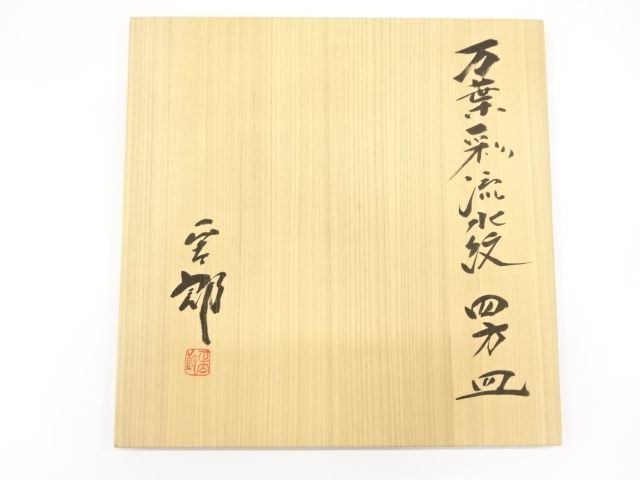 万葉彩流水紋 四方皿